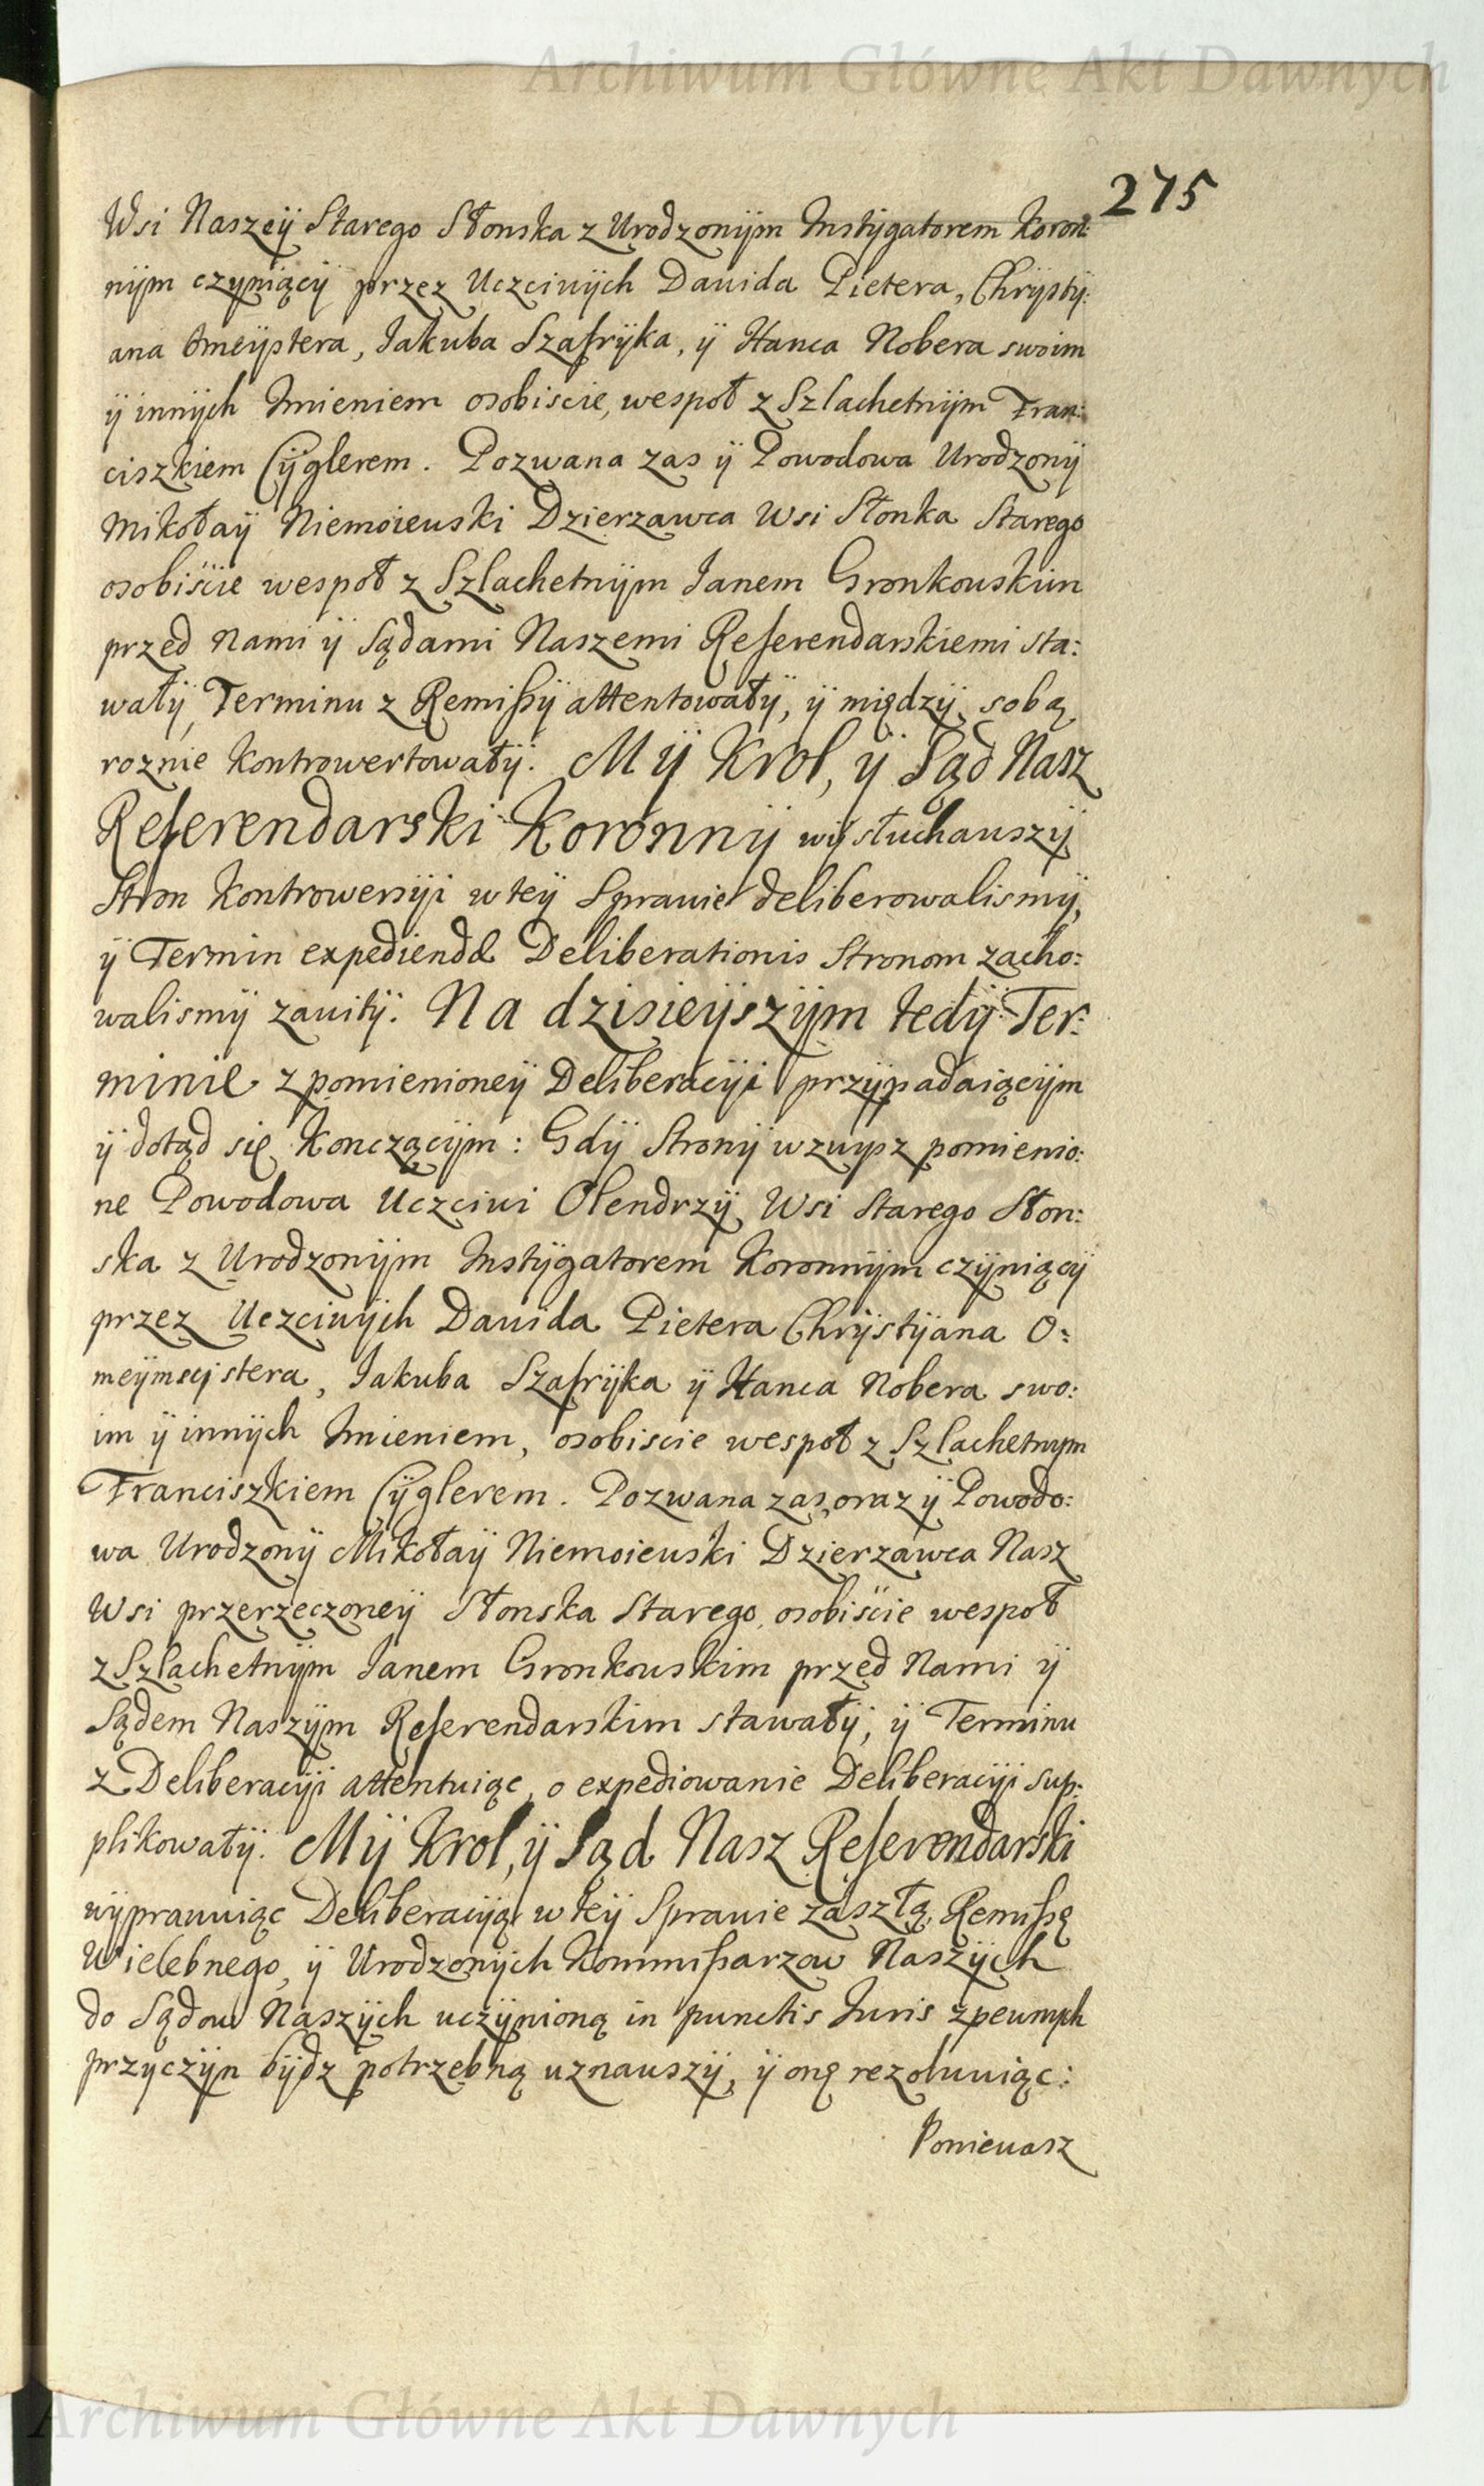 Archiwum Główne Akt Dawnych
275
Wsi Naszeÿ Starego Słonska z Urodzonÿm Instÿgatorem Koron:
nÿm czÿniącÿ przez Uczciwÿch Dawida Pietera, Chrÿstÿ:
ana Omeÿstera, Jakuba Szafrÿka, ÿ Hanca Nobera swoim
ÿ innÿch Imieniem osobiscie, wespoł z Szlachetnÿm Fran:
ciszkiem Cÿglerem. Pozwana zas ÿ Powodowa Urodzonÿ
Mikołaÿ Niemoiewski Dzierzawca Wsi Słonka Starego
osobiście wespoł z Szlachetnÿm Janem Gronkowskim
przed Nami ÿ Sądami Naszemi Referendarskiemi sta:
wałÿ, Terminu z Remißÿ attentowałÿ, ÿ międzÿ sobą
roznie kontrowertowałÿ. Mÿ Krol, ÿ Sąd Nasz
Referendarski Koronnÿ wÿsłuchawszÿ
Stron Kontrowersÿi w teÿ Sprawie deliberowalismÿ,
ÿ Termin expediendæ Deliberationis Stronom zacho:
walismÿ zawitÿ. Na dzisieÿszÿm tedÿ Ter:
minie z pomienioneÿ Deliberacÿi przÿpadaiącÿm
ÿ dotąd się Konczącÿm: Gdÿ Stronÿ wzwysz pomienio:
ne Powodowa Uczciwi Olendrzÿ Wsi Starego Słon:
ska z Urodzonÿm Instÿgatorem Koronnÿm czÿniącÿ
przez Uczciwÿch Dawida Pietera Chrÿstÿana O:
meÿmeÿstera, Jakuba Szafrÿka ÿ Hanca Nobera swo:
im ÿ innÿch Imieniem, osobiscie wespoł z Szlachetnym
Franciszkiem Cÿglerem. Pozwana zas, oraz ÿ Powodo:
wa Urodzonÿ Mikołaÿ Niemoiewski Dzierzawca Nasz
Wsi przerzeczoneÿ Słonska Starego, osobiście wespoł
z Szlachetnÿm Janem Gronkowskim przed Nami ÿ
Sądem Naszÿm Referendarskim stawałÿ, ÿ Terminu
z Deliberacÿi attentuiąc, o expediowanie Deliberacÿi sup:
plikowałÿ. Mÿ Krol, ÿ Sąd Nasz Referendarski
wÿprawuiąc Deliberacÿą w teÿ Sprawie zaszłą, Remißę
Wielebnego, ÿ Urodzonÿch Kommißarzow Naszÿch
do Sądow Naszÿch uczÿnioną in punctis Juris z pewnych
przyczÿn bÿdz potrzebną uznawszÿ, ÿ onę rezolwuiąc:
Poniewasz
Archiwum Główne Akt Dawnych